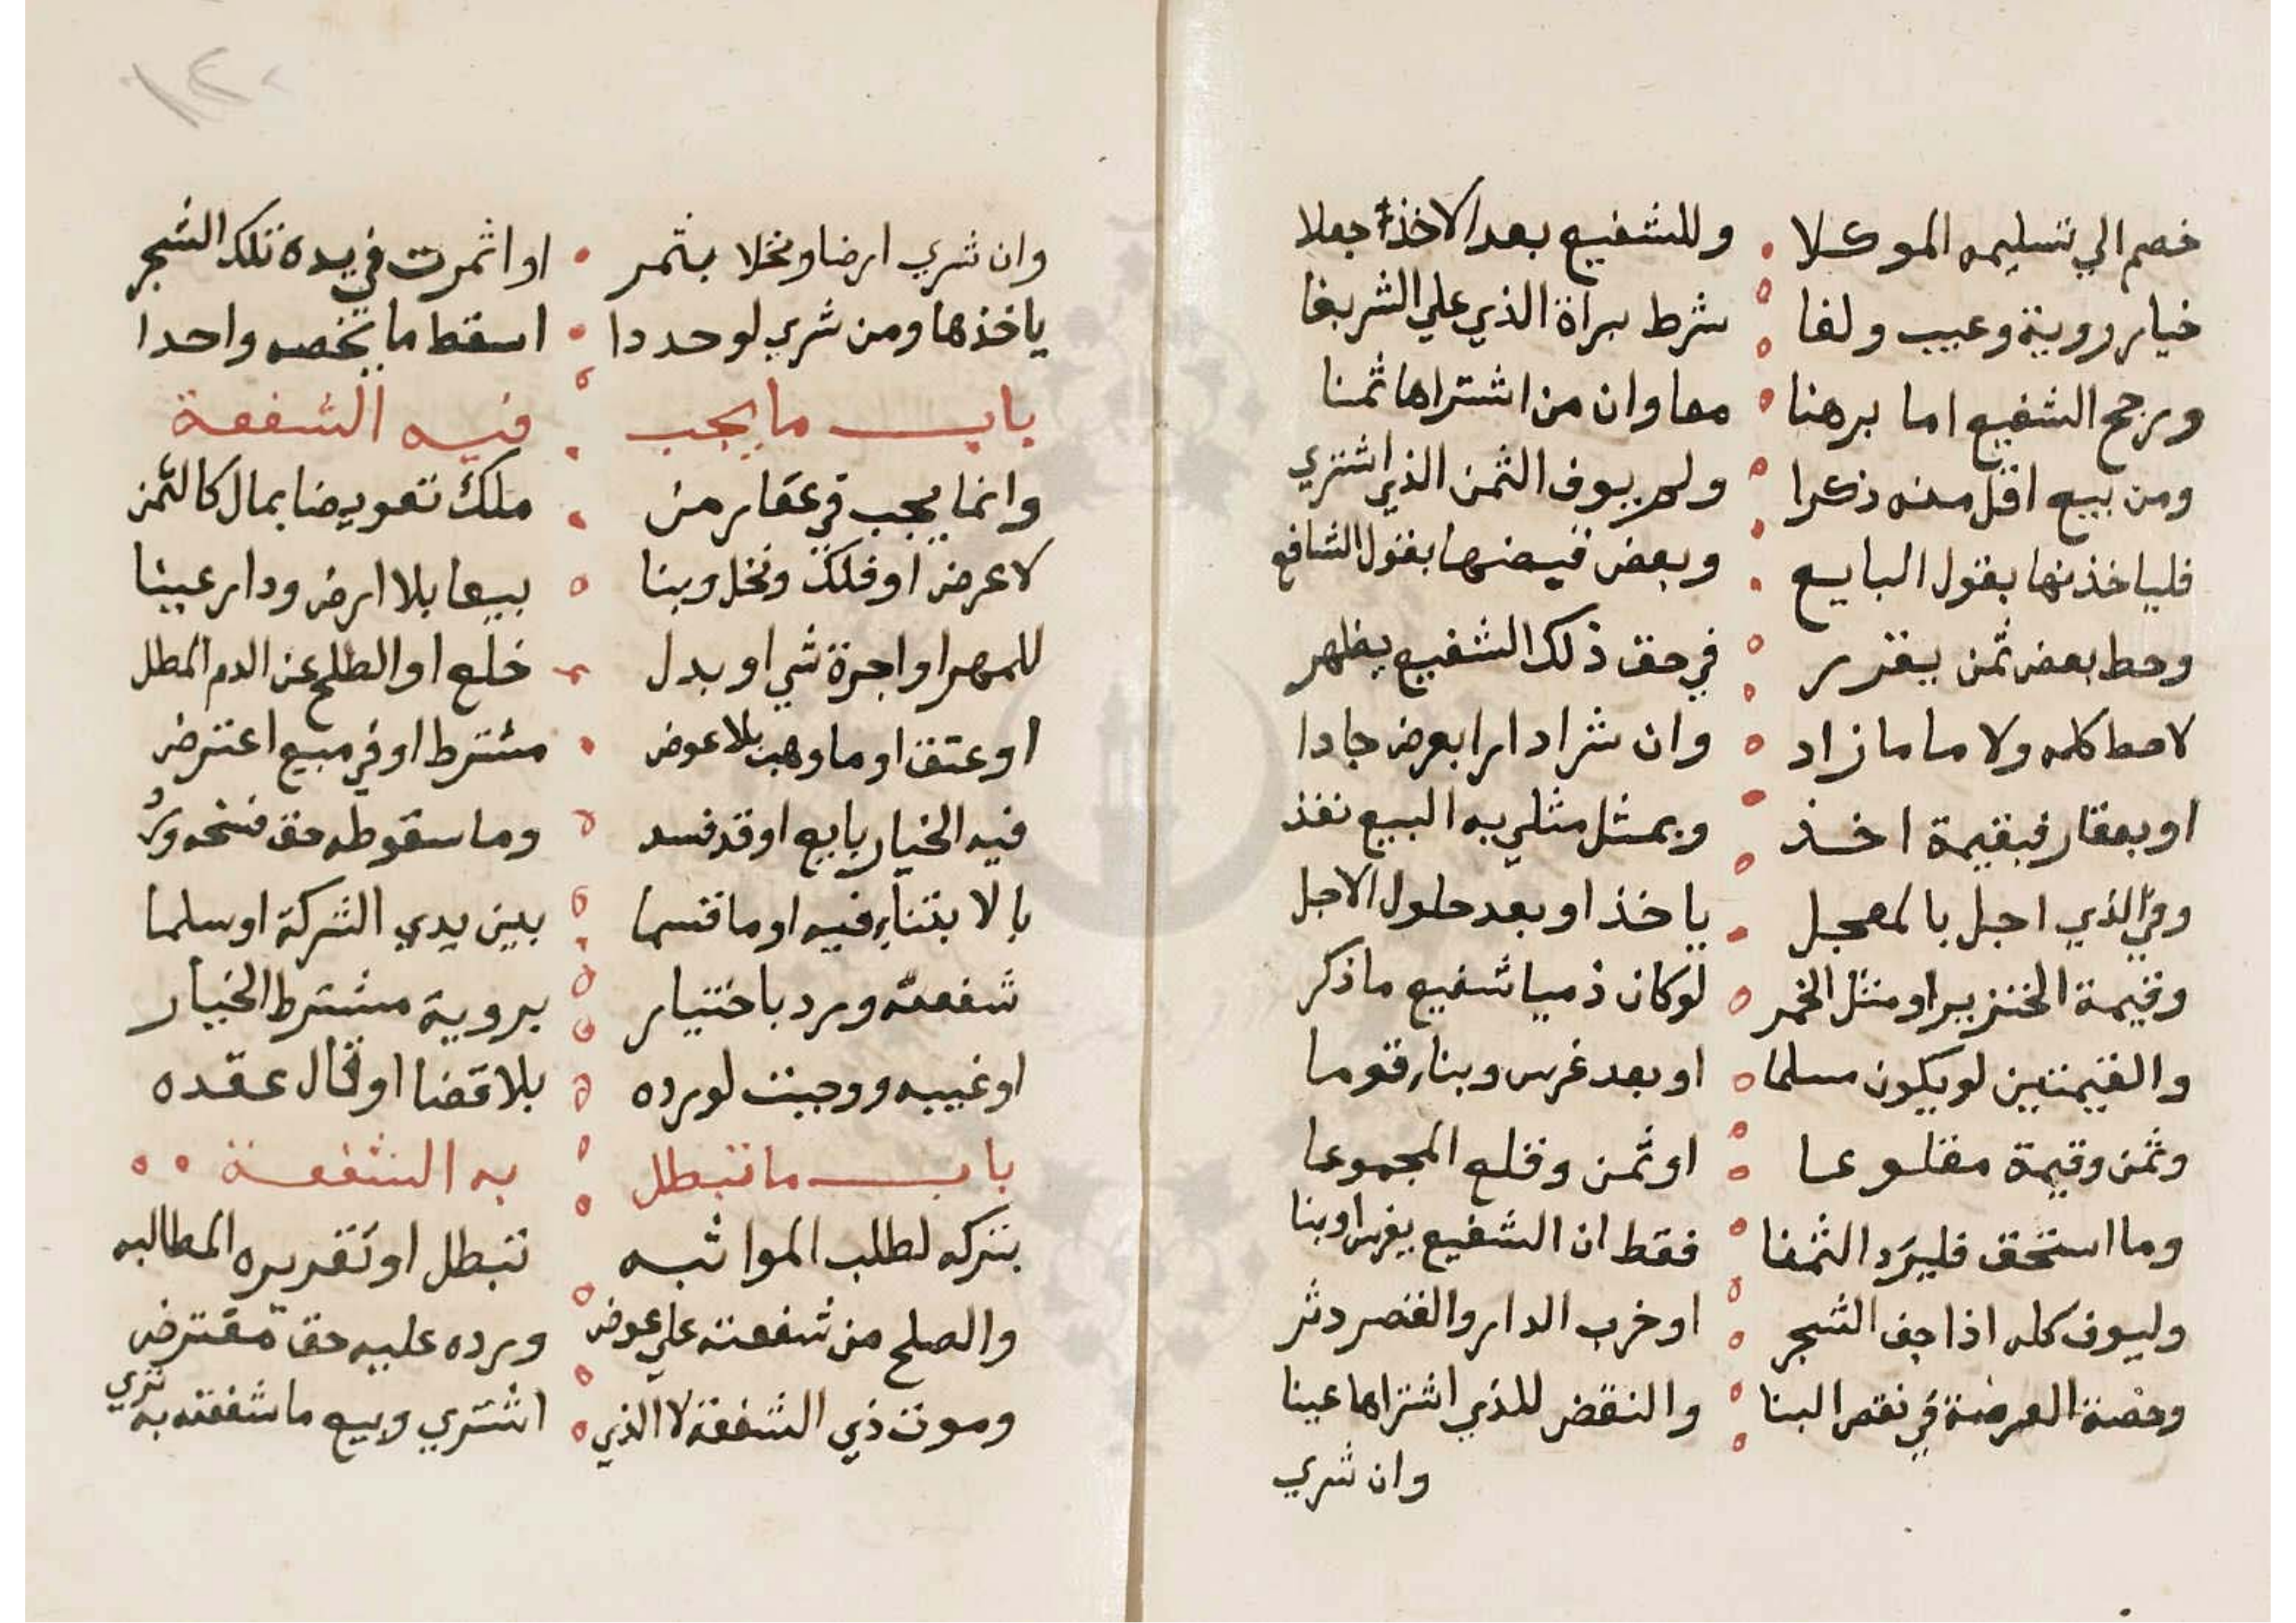 خصم الي تسليمه الموكلا وللشفيع بعد الاخذ جعلا
خيار روية وعيب ولفا شرط براة الذي علي الشر بفا
ورجح الشفيع اما برهنا معا وان من اشتراها ثمنا
ومن بيع اقل منه ذكرا ولم يوف الثمن الذي اشتري
فلياخذنها بقول البايع وبعض قيضنها بقول الشافع
وحط بعض ثمن يقرر في حق ذلك الشفيع يظهر
لا حط كله ولا ما ما زاد وان شرا دارا بعرض جادا
او بعقار فبقيمة اخذ وبمثل مثلي به البيع نفذ
وفي الذي اجل بالمعجل ياخذ او بعد حلول الاجل
وقيمة الخنزير او مثل الخمر لو كان ذميا شفيع ما ذكر
والقيمتين لو يكون مسلما او بعد غرس وبناء قوما
وثمن وقيمة مقلوعا او ثمن وقلع المجموعا
وما استحق فليرد الثمنا فقط ان الشفيع يغرس او بنا
وليوف كله اذا جف الشجر او خرب الدار والقصر دثر
وحصة العرصة في نقص البنا والنقض للذي اشتراها عينا
وان شري
وان شري ارضا ونخلا بثمر او اثمرت في يده تلك الشجر
ياخذها ومن شري لو حددا اسقط ما يخصه واحدا
باب ما يجب فيه الشفعة
وانما يجب في عقار من ملك تعويضا بمال كالثمن
لا عرض او فلك ونخل وبنا بيعا بلا ارض ودار عينا
للمهر او اجرة شي او بدل خلع او الطلح عن الدم المطل
او عتق او ما وهبت بلا عوض مشترط او في مبيع اعترض
فيه الخيار بايع او قد فسد وما سقوط حق فسخه ورد
بالابتناء فيه او ما قسما بين يدي الشركة او سلما
شفعته ورد باختيار بروية مشترط الخيار
او غيبه ووجبت لو رده بلا قضا او قال عقده
باب ما تبطل به الشفعة
بتركه لطلب المواثبه تبطل او تقريره المطالبه
والصلح من شفعته علي عوض ورده عليه حق مفترض
وموت ذي الشفعة لا الذي اشتري وبيع ما شفعته به تري